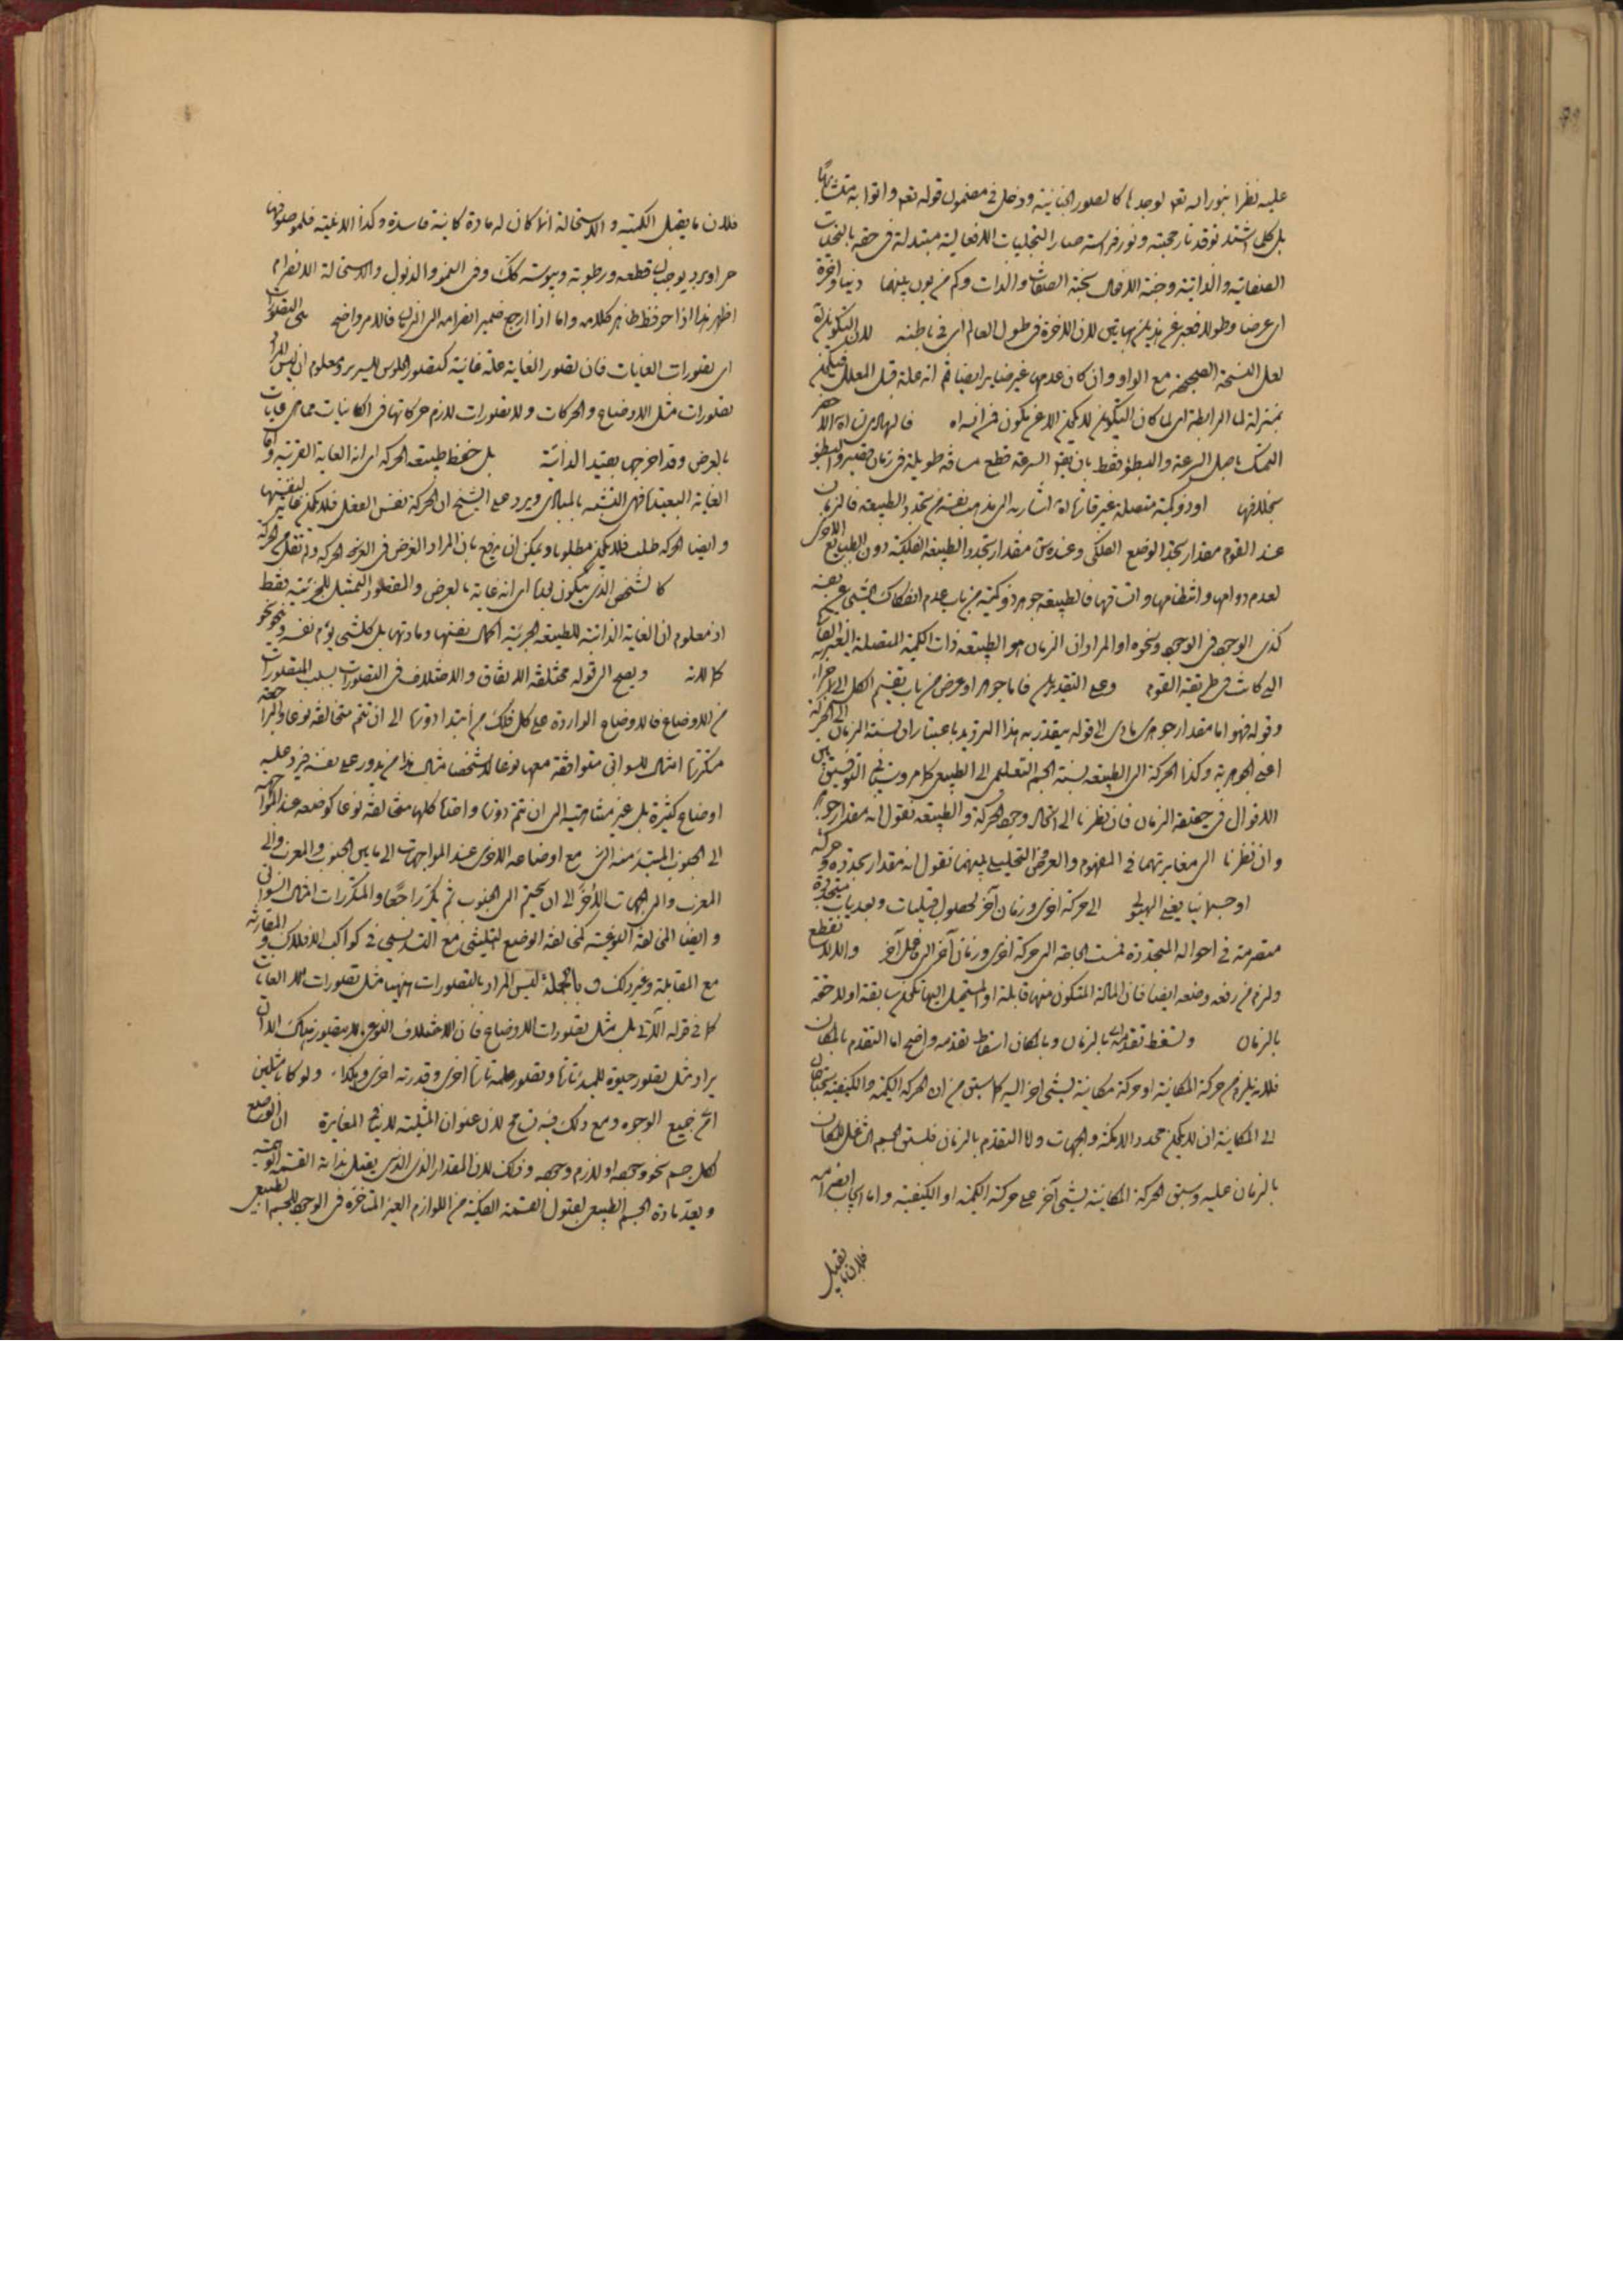 عليه نظرا بنور الله تعم لوجدها كالصور الجنانية ودخل في مضمون قوله تعم واتوا به متشابها
بل كلما اشتد توقد نار محبته ونور فراسته صار التجليات الافعالية مبتدلة في حقه بالتجليات
الصفاتية والذاتية وجنة الافعال بجنة الصفات والذات وكم من بون بينهما دنيا واخرة
اى عرضا وطولا فعبر عن هذين بهاتين لان الاخرة في طول العالم اى في باطنه لان التكوين لا
لعل النسخة الصحيحة مع الواو وان كان عدمها غير ضاير ايضا ثم انه علة قبل المعلل فيكون
بمنزلة لما الرابطة اى لما كان التكوين لا يمكن الا عن يكون فى انه اه فالهادى اه
التمسك باصل السرعة والبطؤ فقط بان يقو السرعة قطع مسافة طويلة في زمان قصير والبطؤ
بخلافها او ذو كمية متصلة غير قارة اشاره الى مذهب نفسه من تجدد الطبيعة فالزمان
عند القوم مقدار تجدد الوضع الفلكى وعنده س مقدار تجدد الطبيعة الفلكية دون الطبايع الاخرى
لعدم دوامها وانتظامها واتساقها فالطبيعة جوهر ذو كمية من باب عدم انفكاك الشيء عن نفسه
كذى الوجود في الوجود ونحوه او المراد ان الزمان هو الطبيعة ذات الكمية المتصلة الغير القارة
التى كانت فى طريقة القوم وعلى التقديرين فاما جوهر او عرض من باب تقسيم الكل الى الاجزاء
وقوله فهو اما مقدار جوهرى مادى الى قوله يتقدر به هذا الترديد باعتبار ان نسبة الزمان الى الحركة
اعنى الجوهرية وكذا الحركة الى الطبيعة نسبة الجسم التعليمى الى الطبيعى كما مر وسيأتي التوفيق بين
الاقوال فى حقيقة الزمان فان نظرنا الى اتحاد وجود الحركة والطبيعة نقول انه مقدار جوهر
وان نظرنا الى مغايرتهما في المفهوم والعروض التحليلى بينهما نقول انه مقدار تجدده وحركته
او جسمانيا يعنى الهيولى الى حركة اخرى وزمان آخر لحصول قبليات وبعديات متجددة
متصرمة فى احواله المتجددة فمست الحاجة الى حركة اخرى وزمان آخر الى قابل آخر والا لانقطع
ولزم من رفعه وضعه ايضا فان المادة المتكون منها قابلة او المستحيل اليها تكون سابقة او لاحقة
بالزمان ولسقط تقدمه بالزمان وبالمكان اسقاط تقدمه واضح اما التقدم بالمكان
فلانه يلزم من حركة المكانية او حركة مكانية لشيء اخر اليه كما سبق من ان الحركة الكمية والكيفية تحتاجان
الى المكانية ان لا يكون محدد الامكنة والجهات ولا التقدم بالزمان فلسبق الجسم الشاغل للمكان
بالزمان عليه وسبق الحركة المكانية لشيء آخر على حركته الكمية او الكيفية واما ايجاب انصرامه
فلان ما يقبل
فلان ما يقبل الكمية والاستحالة انما كان له مادة كاينة فاسدة وكذا الاغلبية فلموصوفها
حر او برد يوجب قطعه ورطوبة ويبوسة كك وفى النمو والذبول والاستحالة الانصرام
اظهر هذا اذا حوفظ ظاهر كلامه واما اذا ارجع ضمير انصرامه الى الزمان فالامر واضح على التصورات
اى تصورات الغايات فان تصور الغاية علة غائية كتصور الجلوس للسرير ومعلوم ان ليس المراد
تصورات مثل الاوضاع والحركات ولا تصورات لازم حركاتها فى الكاينات مما هى غايات
بالعرض وقد اخرجها بقيد الذاتية بل حفظ طبيعة الحركة اى انه الغاية القريبة واما
الغاية البعيدة فهى التشبه بالمبادى ويرد على الشيخ ان الحركة نفس الفعل فلا تكون غاية لنفسها
وايضا الحركة طلب فلا تكون مطلوبا ويمكن ان يرفع بان المراد الغرض فى الحركة
كالشخص الذى يتكون فيها اى انه غاية بالعرض والمقصود التمثيل للجزئية فقط
اذ معلوم ان الغاية الذاتية للطبيعة الجزئية اكمال نفسها ومادتها بل كل شيء يؤم نفسه بنحو نحو
كمالاته ويصح الى قوله مختلفة الاتفاق والاختلاف فى التصورات بسبب المتصورات
من الاوضاع فالاوضاع الواردة على كل فلك من ابتداء دورة الى ان تتم متخالفة نوعا والراجعة
مكررة امثال للسوابق متوافقة معها نوعا لا شخصا مثال هذا من يدور على نفسه فيرد عليه
اوضاع كثيرة بل غير متناهية الى ان تتم دورة واحدة كلها متخالفة نوعا كوضعه عند المواجهة
الى الجنوب المبتدء منه التى مع اوضاعه الاخرى عند المواجهات الى ما بين الجنوب والمغرب والى
المغرب والى الجهات الأخر الى ان يختم الى الجنوب ثم يكرر راجعا والمكررات امثال السوابق
وايضا المخالفة النوعية كمخالفة الوضع التثليثى مع التسديسى فى كواكب الافلاك والمقارنة
مع المقابلة وغير ذلك وبالجملة ليس المراد بالتصورات هيهنا مثل تصورات الغايات
كما في قوله الآتى بل مثل تصورات الاوضاع فان الاختلاف النوعى لا يتصور هناك الا ان
يراد مثل تصور حيوة للمبدء تارة وتصور علمه تارة اخرى وقدرته اخرى وهكذا ولو كانا مثلين
اى من جميع الوجوه ومع ذلك فيه تسامح لان عنوان المثلية لا ينافى المغايرة اذ الوضع
لكل جسم نحو وجوده او لازم وجوده وذلك لان المقدار الذى يقبل بذاته القسمة الوهمية
ويعد مادة الجسم الطبيعى لقبول القسمة الفكية من اللوازم الغير المتاخرة فى الوجود للجسم الطبيعى